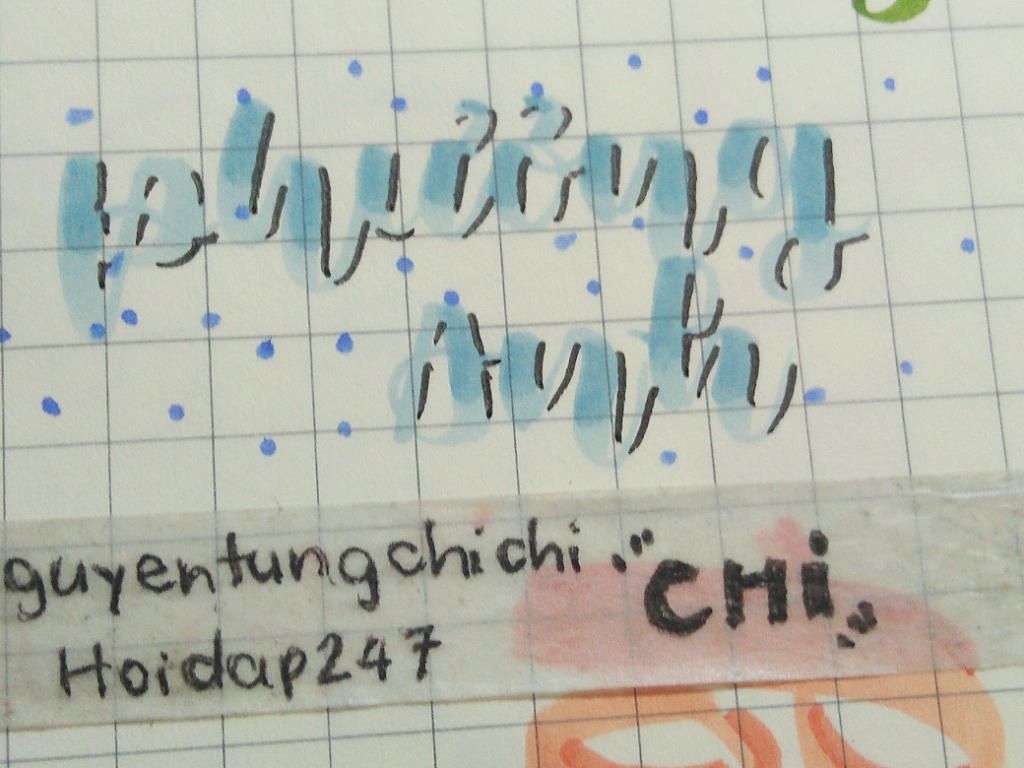 phương
Anh
guyentungchichi "CHi"
Hoidap247